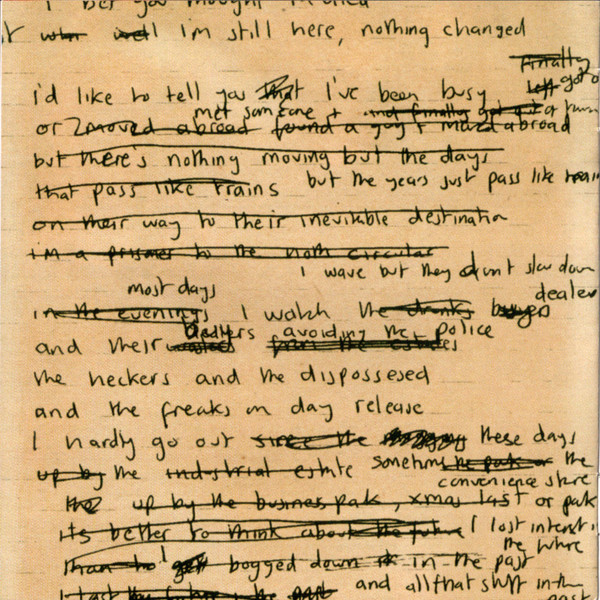 I bet you thought
it when well I'm still here, nothing changed
finally
I'd like to tell you that I've been busy left got o
met someone + and finally got out of town
or I moved abroad found a guy + moved abroad
but there's nothing moving but the days
that pass like trains but the years just pass like trains
on their way to their inevitable destination
i'm a prisoner to the north circular
I wave but they don't slow down
most days dealers
in the evenings I watch the drunks buyers
dealers avoiding the police
and their from the estates
the heckers and the dispossesed
and the freaks on day release
I hardly go out since the these days
up by the industrial estate sometimes the park or the
convenience store
the up by the business park, xmas last or park
it's better to think about the future I lost interest i
the future
than to get bogged down in the past
I the past and all that stuff in the
past